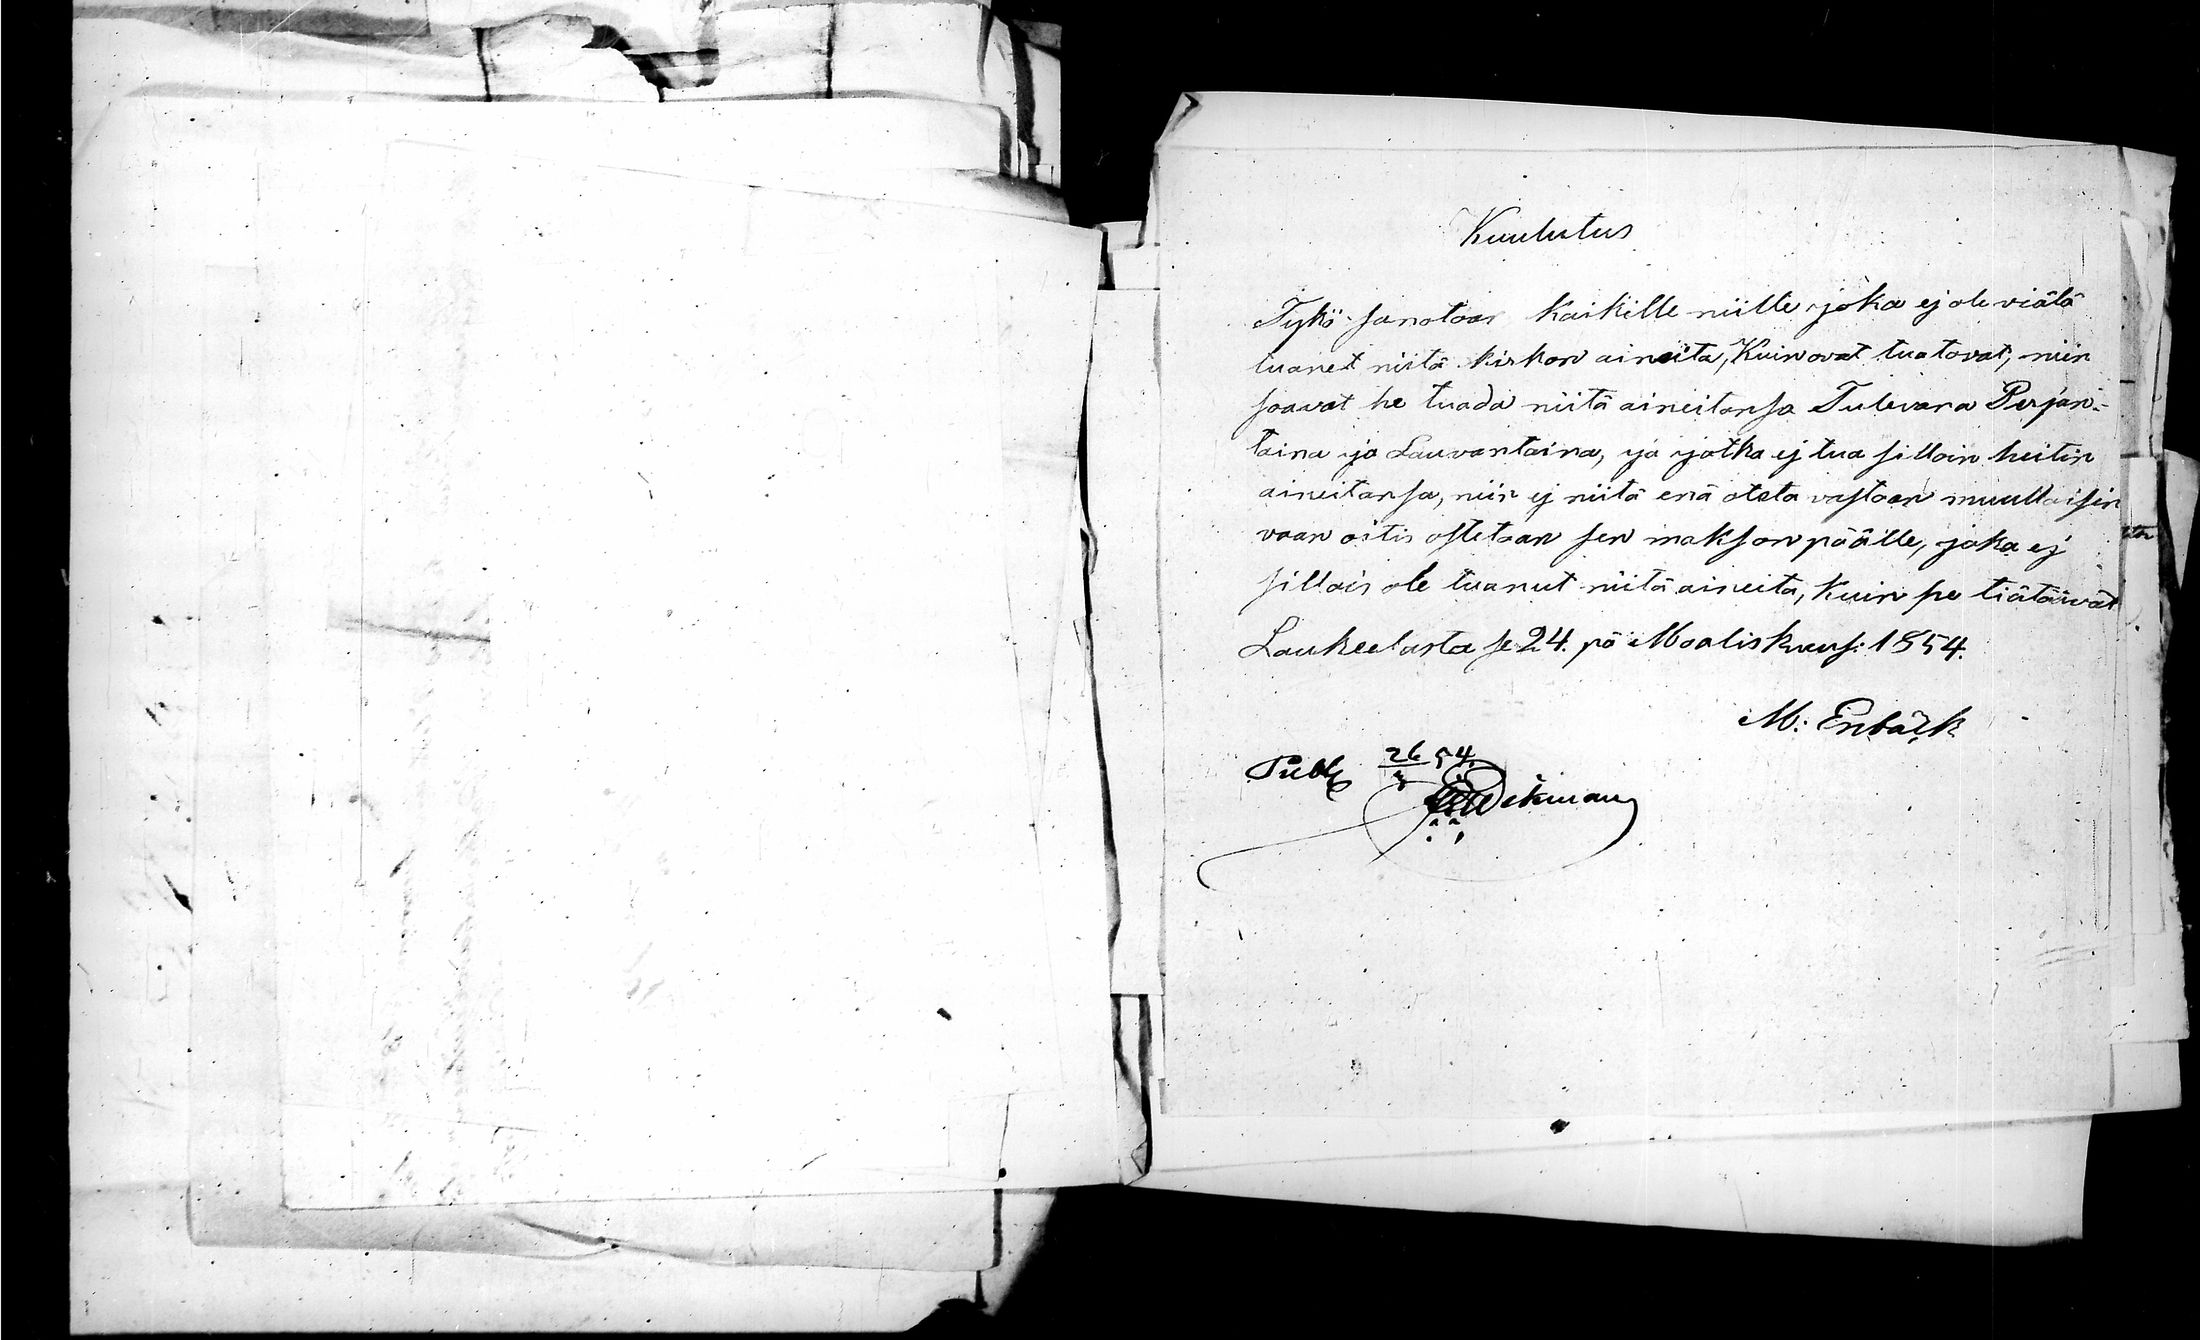 Kuulutus
Tykö sanotaan Kaikille niille joka ej ole viälä
tuanet niitä kirkon aineita, Kuin ovat tuatovat, niin
saavat he tuada niitä aineitansa Tulevana Perjan-
taina ja Lauvantaina, ja jotka ej tua silloin heitin
aineitansa, niin ej niitä enä oteta vastaan muulloisin
vaan oitis ostetaan sen makson päälle, joka ej
silloin ole tuanut niitä aineita, Kuin se tiätäwät
Laukeelasta se 24. pä Maaliskuus: 1854.
M: Enbäck
Publ 26/3 54.
Wikman